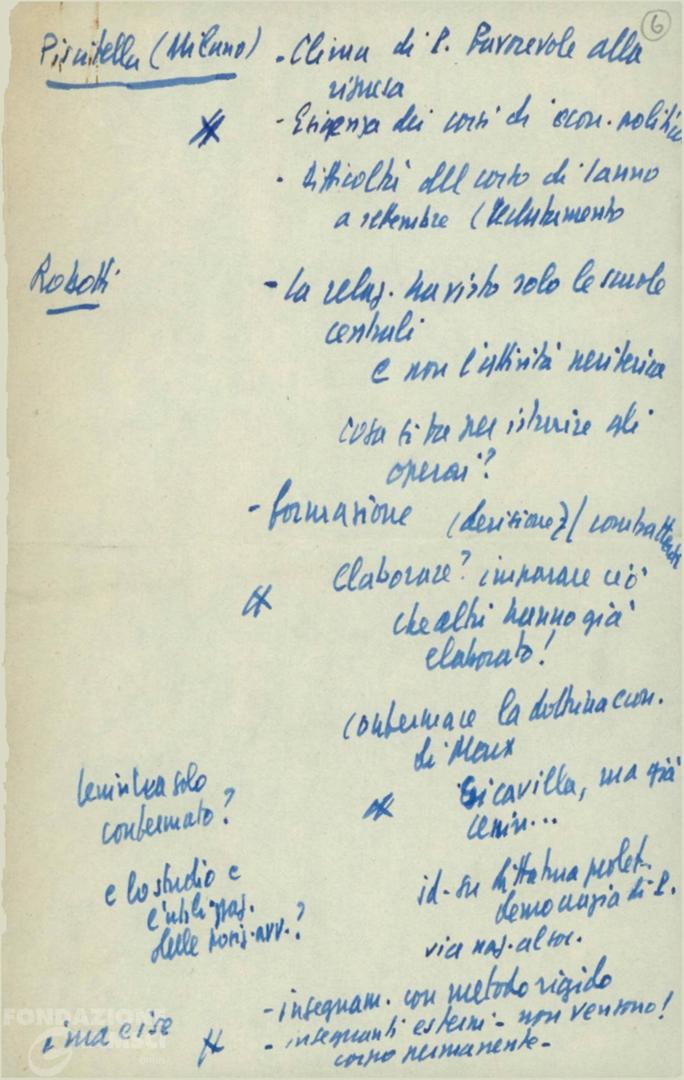 6
Piscitella (Milano) - Clima di P. favorevole alla
ripresa
- Esigenza dei corsi di econ. politica
- Difficoltà del corso di 1 anno
a settembre (reclutamento
Robotti - La relaz. ha visto solo le scuole
centrali
e non l'attività periferica
cosa si fa per istruire gli
operai?
- formazione (decisione?) (combattente
Elaborare? imparare ciò
che altri hanno già
elaborato!
confermare la dottrina econ.
di Marx
Lenin l'ha solo
confermato?
Si cavilla, ma già
Lenin...
e lo studio e
l'utilizzaz.
delle posiz. avv.?
id. su dittatura prolet.
democrazia di P.
via naz. al soc.
- insegnam. con metodo rigido
- insegnanti esterni - non vengono!
corpo permanente -
FONDAZIONE
GRAMSCI